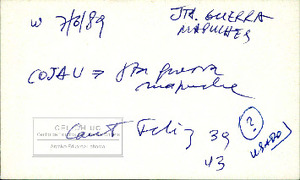 w 7/6/89
JTA. GUERRA
MAPUCHES
COJAU ⇒ Jta guerra
mapuche
Cant Feliz 39
43
?
USADO